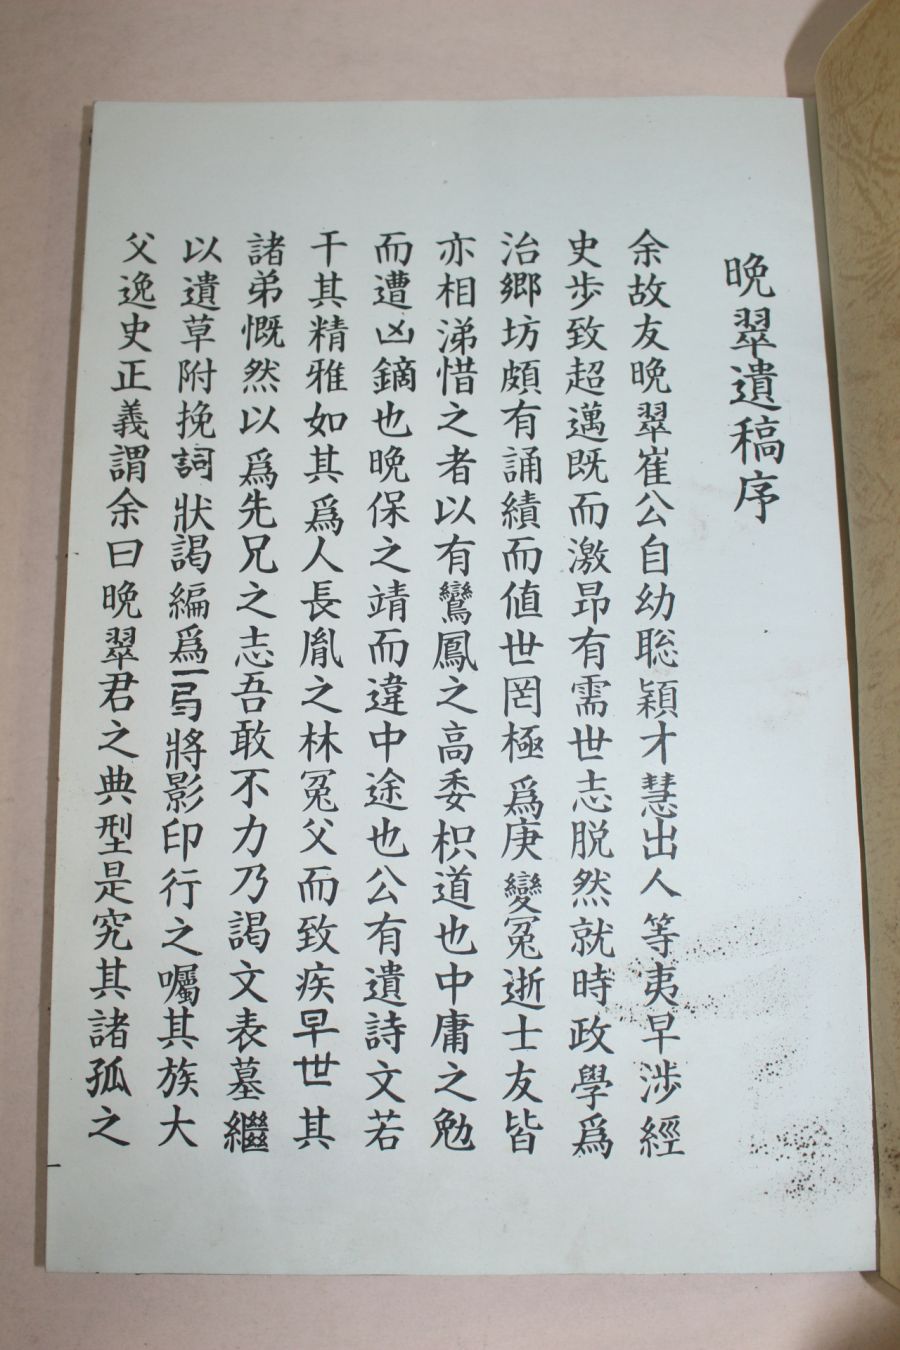 晩翠遺稿序
余故友晩翠崔公自幼聡穎才慧出人等夷早涉經
史步致超邁既而激昂有需世志脱然就時政學爲
治鄉坊頗有誦績而値世罔極爲庚變冤逝士友皆
亦相涕惜之者以有鸞鳳之高委枳道也中庸之勉
而遭凶鏑也晩保之靖而違中途也公有遺詩文若
干其精雅如其爲人長胤之林冤父而致疾早世其
諸弟慨然以爲先兄之志吾敢不力乃謁文表墓繼
以遺草附挽詞狀謁編爲一弓將影印行之囑其族大
父逸史正義謂余曰晩翠君之典型是究其諸孤之